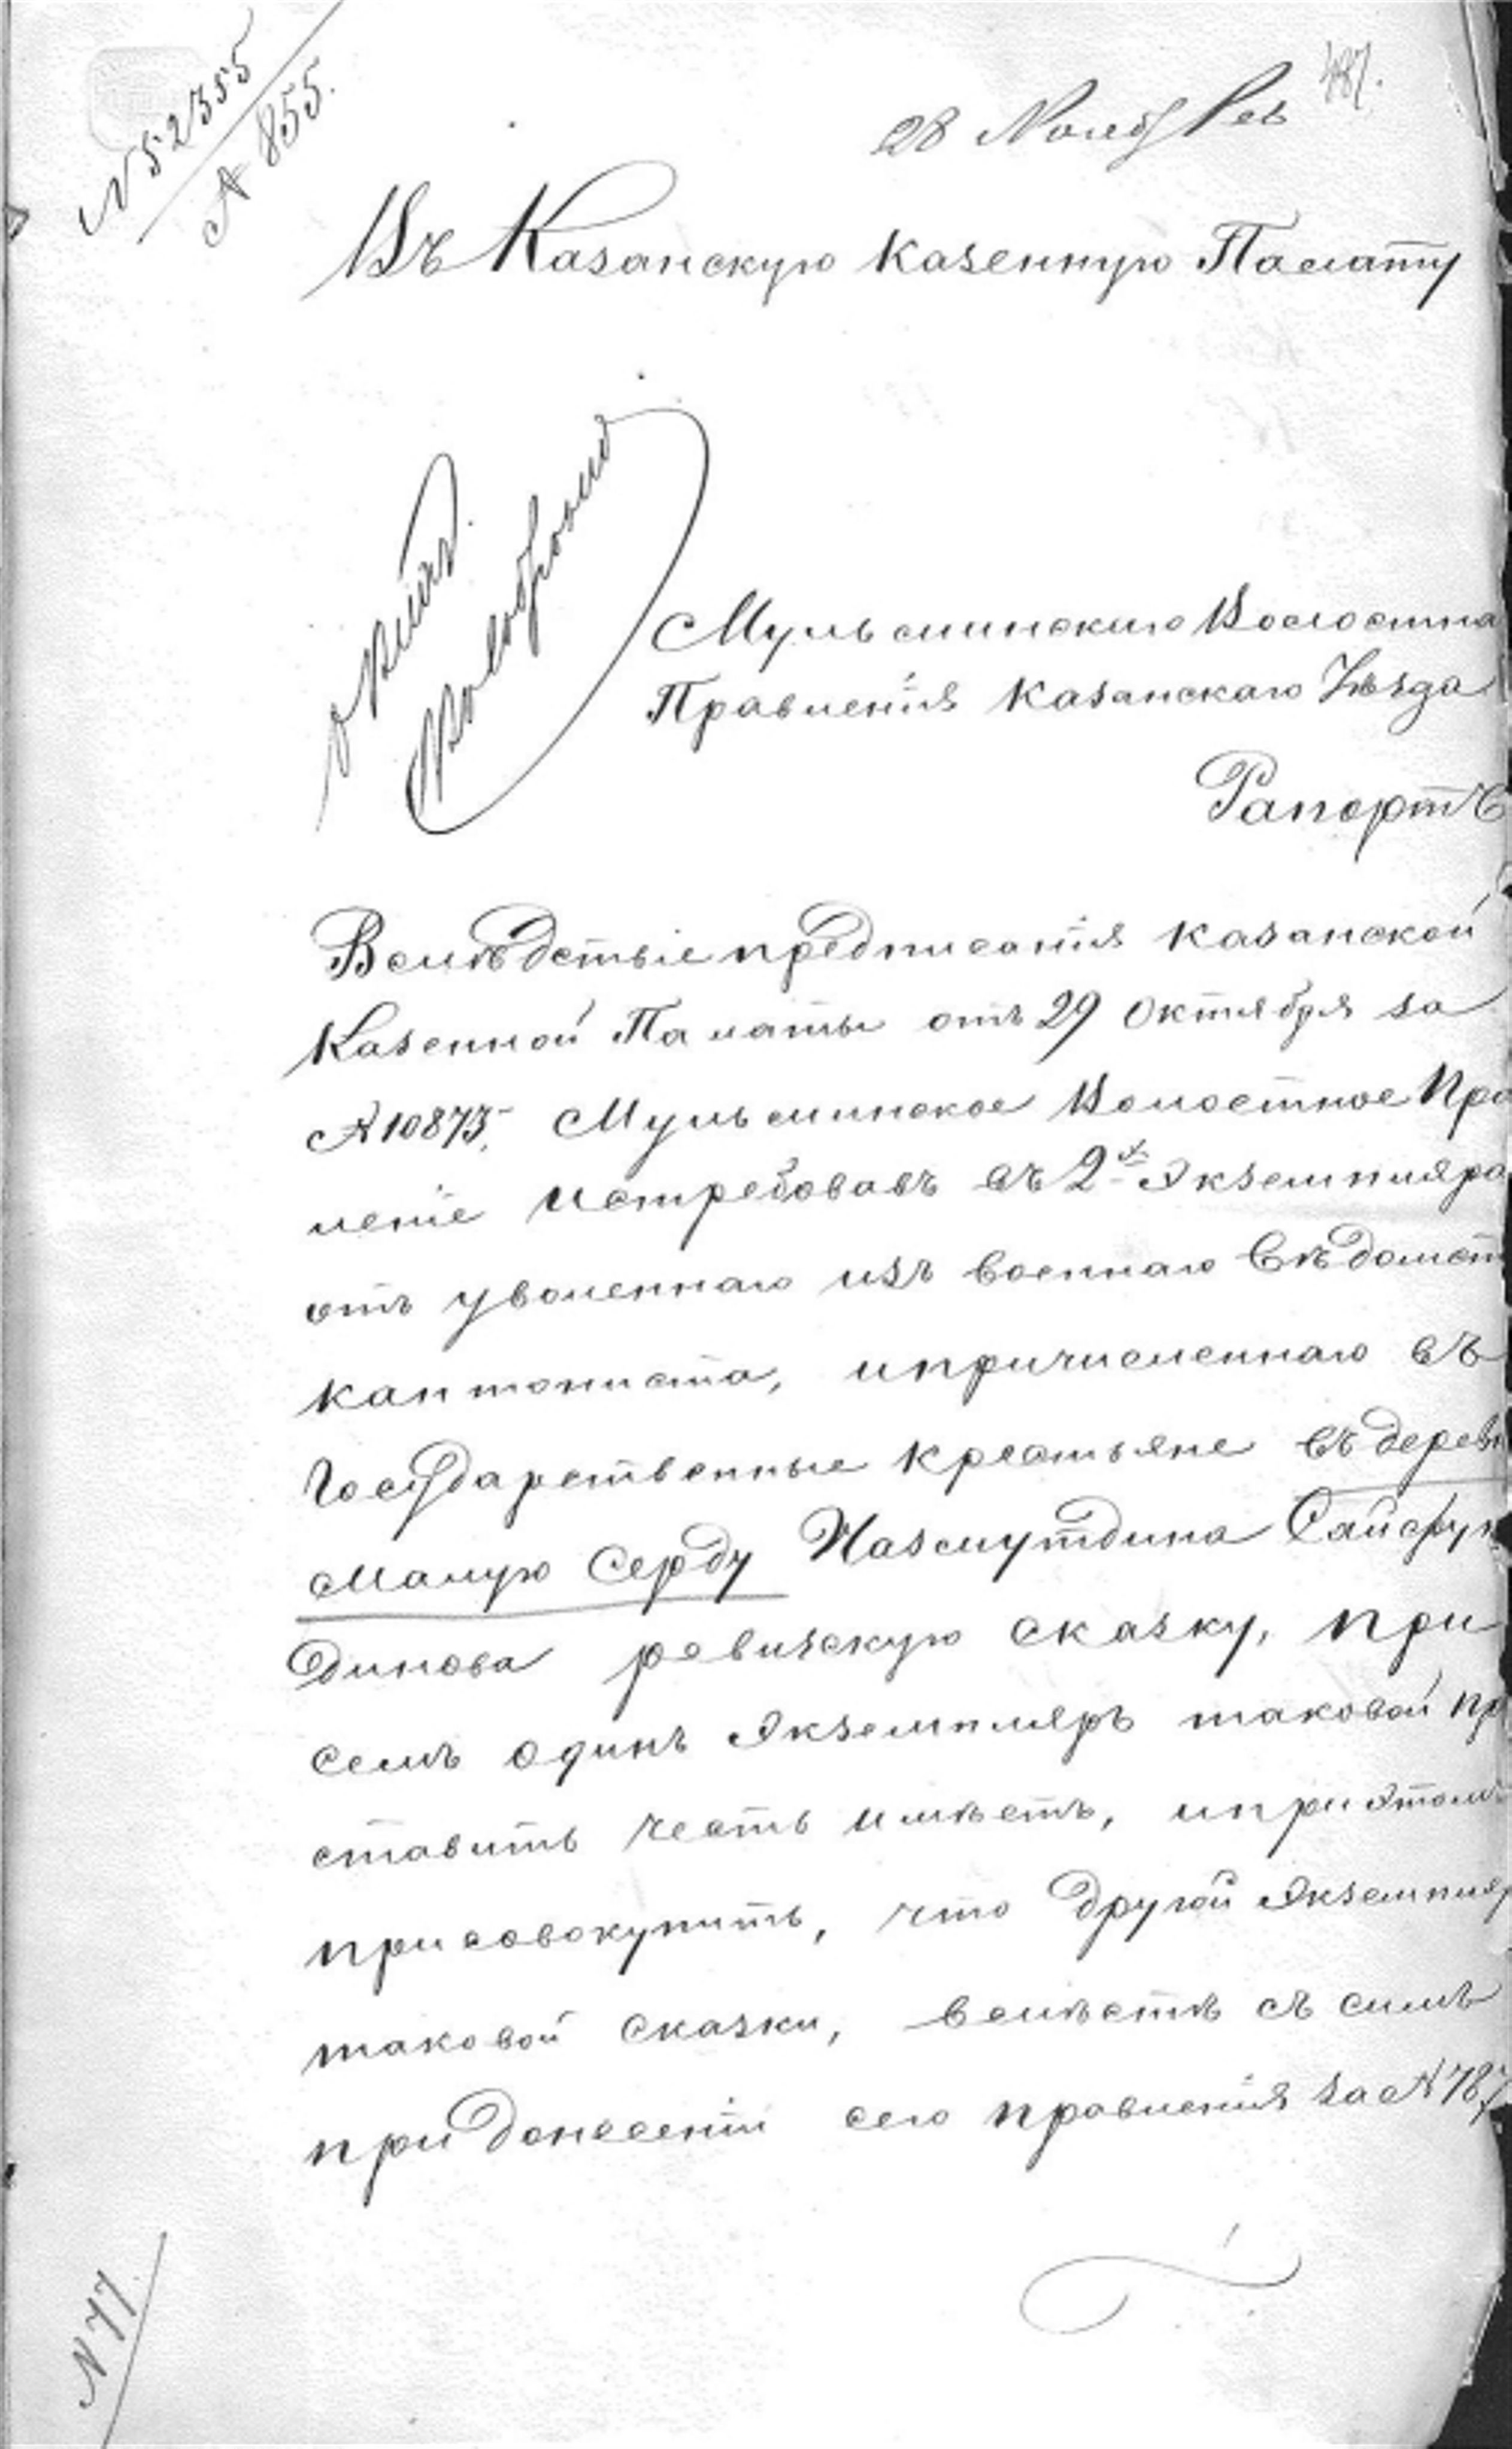 N 52355
№ 855.
487.
28 Ноября
Въ Казанскую Казенную Палату
Мульминскаго Волостна
Правленія Казанскаго Уѣзда
Рапортъ
Вслѣдствіе предписанія Казанской
Казенной Палаты отъ 29 Октября за
№ 10873, Мульминское Волостное Пра
леніе истребовавъ въ 2х Экземпляра
отъ уволеннаго изъ военнаго Вѣдомст
кантониста, и причисленнаго въ
Государственные крестьяне въ дерев
Малую Серду Назмутдина Сайфун
динова ревизскую сказку, при
семъ одинъ Экземпляръ таковой пр
ставить честь имѣетъ, и при этомъ
присовокупить, что другой Экземпляр
таковой сказки, вмѣстѣ съ симъ
при донесеніи сего правленія за № 787
N 77